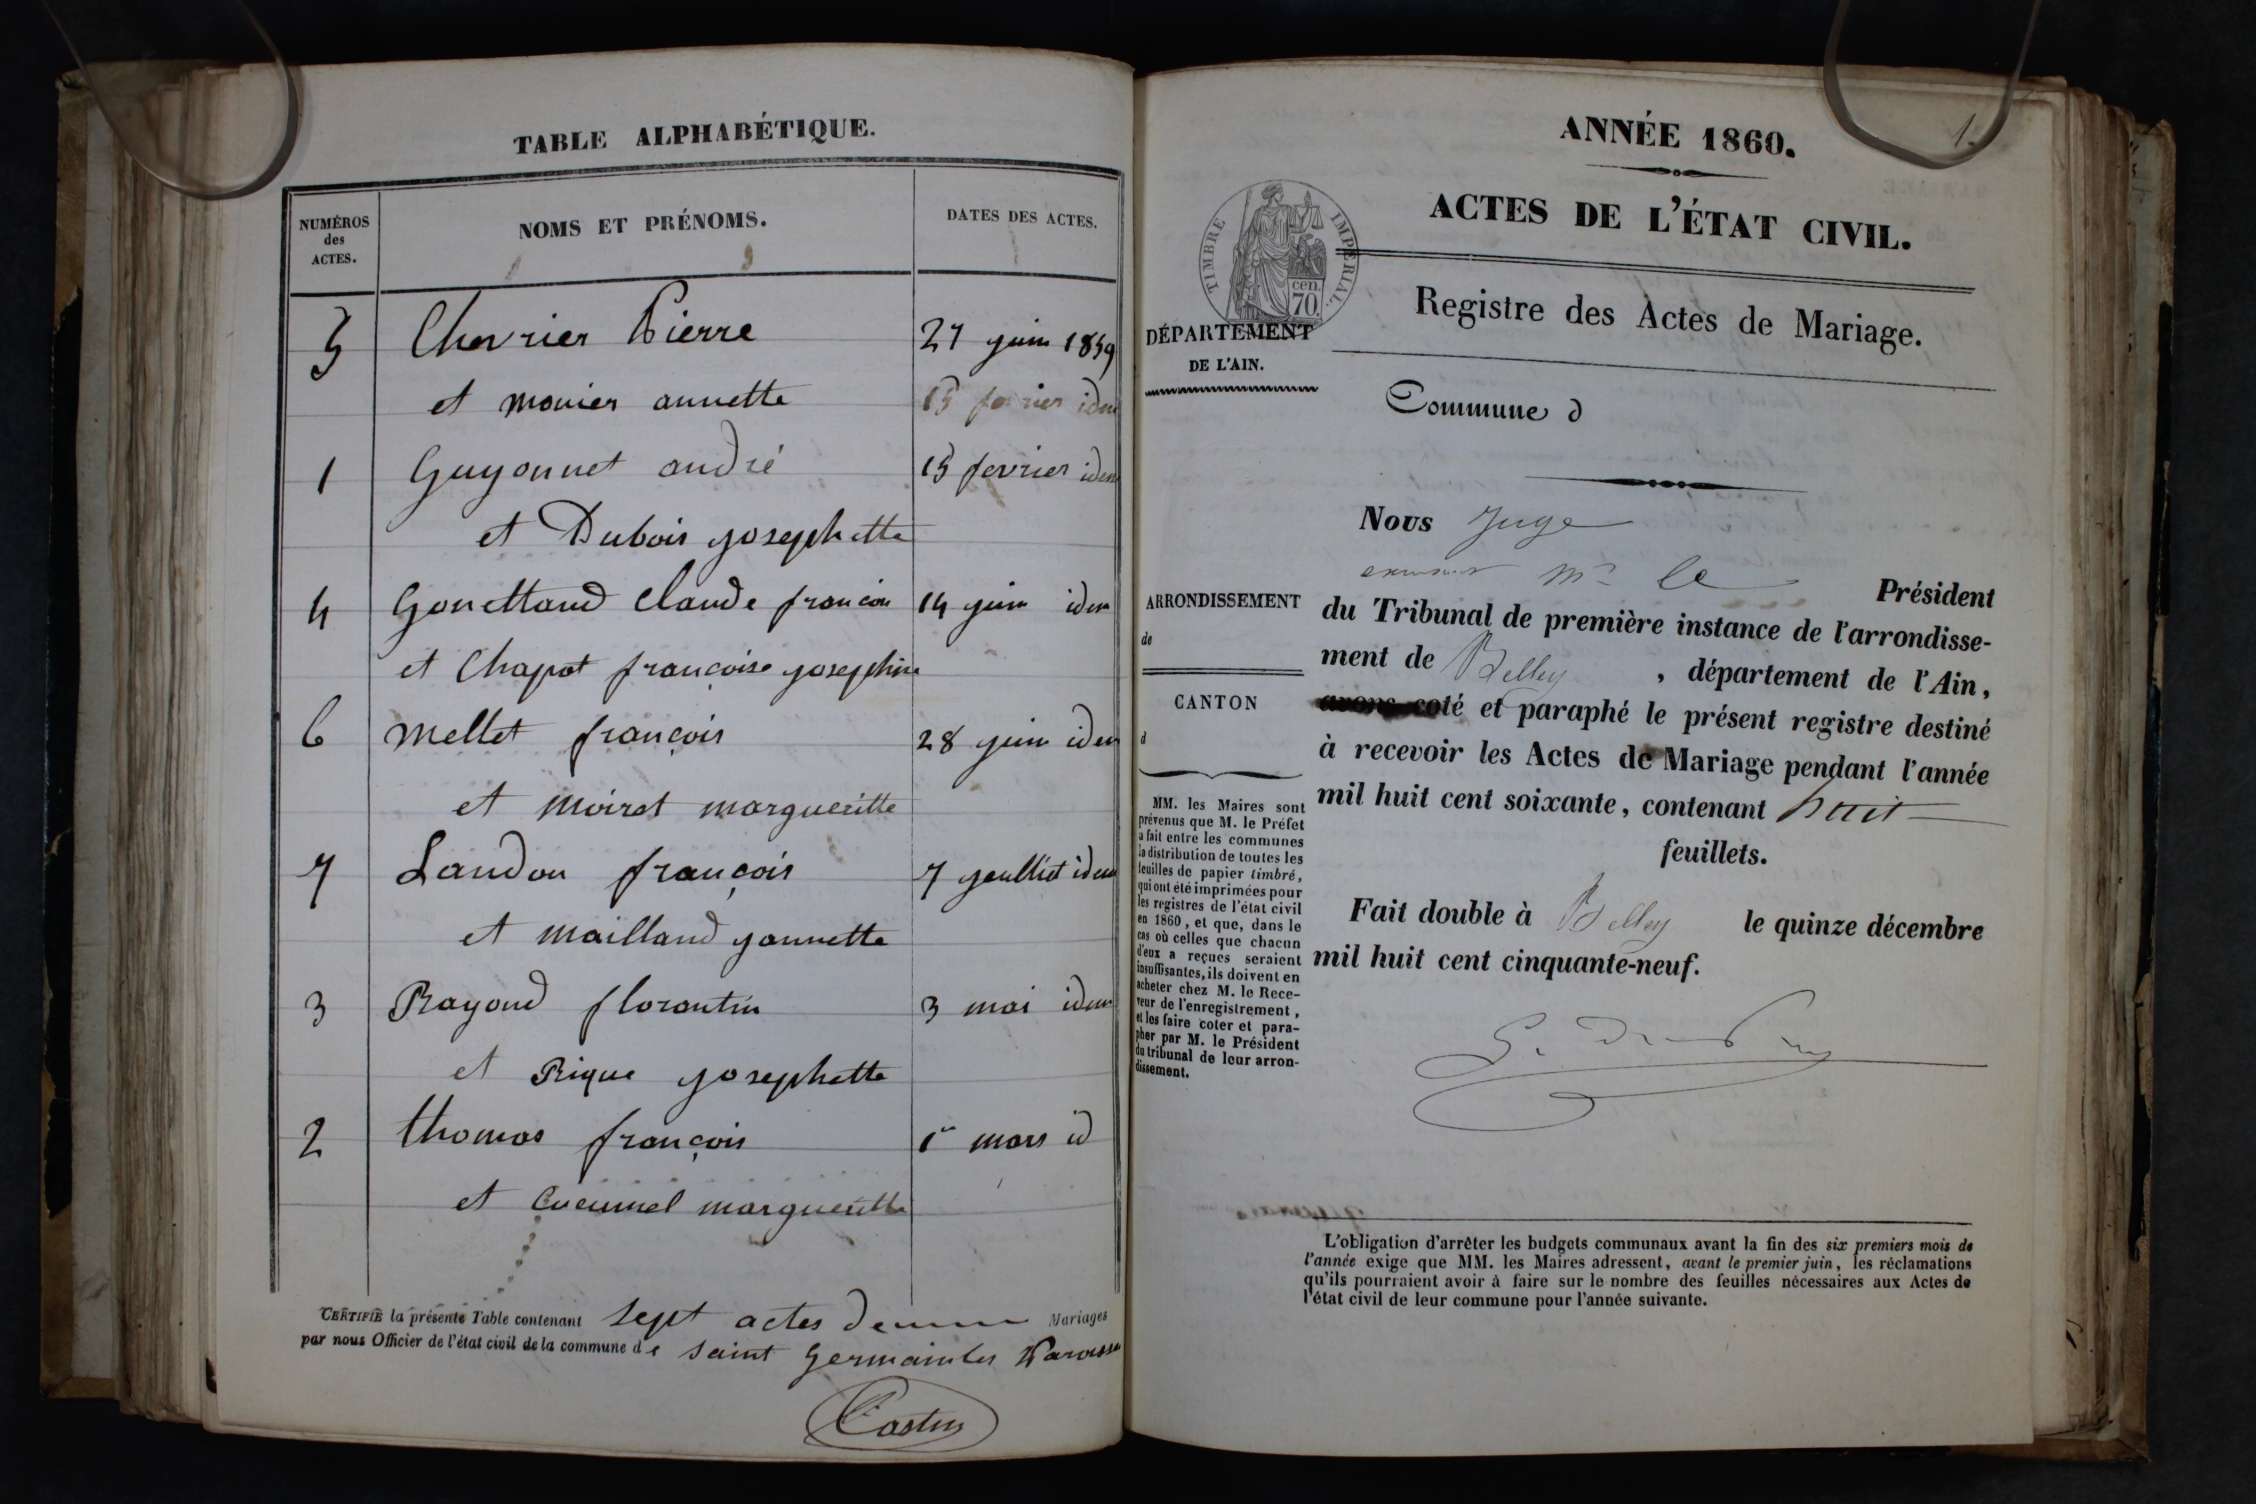 TABLE ALPHABÉTIQUE.
NUMÉROS des ACTES.
NOMS ET PRÉNOMS.
DATES DES ACTES.
5 Chevrier Pierre 27 juin 1859
et monier annette 15 fevrier idem
1 Guyonnet andré 15 fevrier idem
et Dubois josephette
4 Gonettand Claude françois 14 juin idem
et Chapot françoise josephine
6 mellet françois 28 juin idem
et moiret margueritte
7 Landon françois 7 jeulliet idem
et mailland jannette
3 Rayoud florantin 3 mai idem
et Rique josephette
2 thomas françois 1er mars id
et margueritte
CERTIFIÉ la présente Table contenant sept actes de Mariages
par nous Officier de l'état civil de la commune de saint germain les Paroisses
Castin
1.
ANNÉE 1860.
ACTES DE L'ÉTAT CIVIL.
TIMBRE IMPÉRIAL.
cen.
70.
Registre des Actes de Mariage.
DÉPARTEMENT
DE L'AIN.
Commune d
Nous Juge
Mr le Président
du Tribunal de première instance de l'arrondisse-
ment de Belley, département de l'Ain,
avons coté et paraphé le présent registre destiné
à recevoir les Actes de Mariage pendant l'année
mil huit cent soixante, contenant huit
feuillets.
Fait double à Belley le quinze décembre
mil huit cent cinquante-neuf.
ARRONDISSEMENT
de
CANTON
d
MM. les Maires sont
prévenus que M. le Préfet
a fait entre les communes
la distribution de toutes les
feuilles de papier timbré,
qui ont été imprimées pour
les registres de l'état civil
en 1860, et que, dans le
cas où celles que chacun
d'eux a reçues seraient
insuffisantes, ils doivent en
acheter chez M. le Rece-
veur de l'enregistrement,
et les faire coter et para-
pher par M. le Président
du tribunal de leur arron-
dissement.
L'obligation d'arrêter les budgets communaux avant la fin des six premiers mois de
l'année exige que MM. les Maires adressent, avant le premier juin, les réclamations
qu'ils pourraient avoir à faire sur le nombre des feuilles nécessaires aux Actes de
l'état civil de leur commune pour l'année suivante.